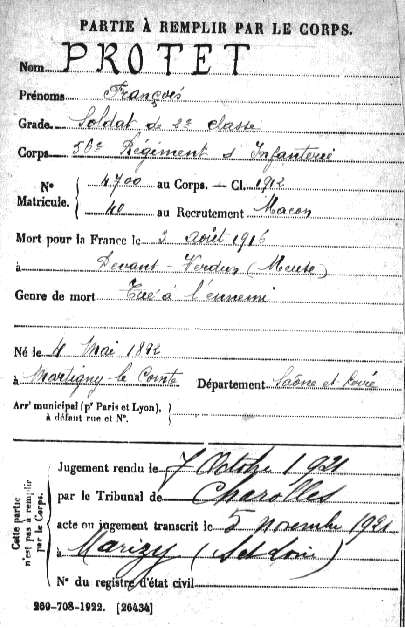 PARTIE À REMPLIR PAR LE CORPS.
Nom PROTET
Prénoms François
Grade Soldat de 2e classe
Corps 56e Régiment d'Infanterie
N° Matricule. { 4700 au Corps. — Cl. 1912
40 au Recrutement Macon
Mort pour la France le 3 août 1916
à Devant-Verdun (Meuse)
Genre de mort Tué à l'ennemi
Né le 4 Mai 1892
à Martigny le Comte Département Saône et Loire
Arr' municipal (p' Paris et Lyon),
à défaut rue et N°.
Cette partie n'est pas à remplir par le Corps.
Jugement rendu le 7 Octobre 1921
par le Tribunal de Charolles
acte ou jugement transcrit le 5 novembre 1921
à Marizy (S et Loire)
N° du registre d'état civil
269-708-1922. [26434]